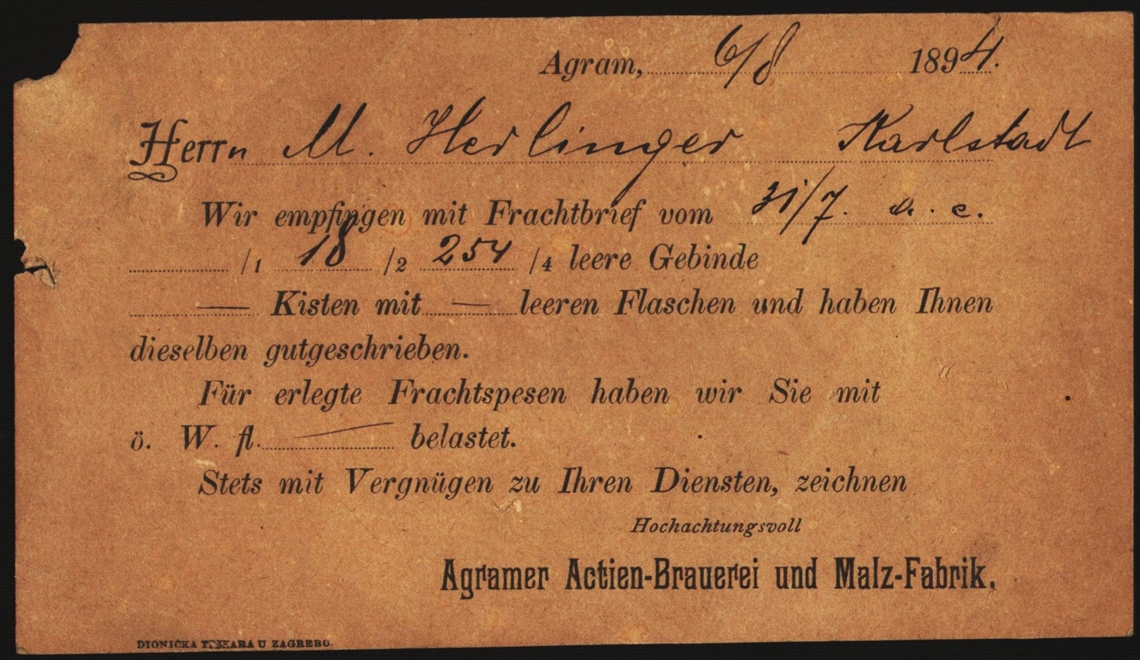 Agram, 6/8 1894.
Herrn M. Herlinger Karlstadt
Wir empfingen mit Frachtbrief vom 31/7. a. c.
/1 18 /2 254 /4 leere Gebinde
— Kisten mit — leeren Flaschen und haben Ihnen
dieselben gutgeschrieben.
Für erlegte Frachtspesen haben wir Sie mit
ö. W. fl. — belastet.
Stets mit Vergnügen zu Ihren Diensten, zeichnen
Hochachtungsvoll
Agramer Actien-Brauerei und Malz-Fabrik.
DIONIČKA TISKARA U ZAGREBU.